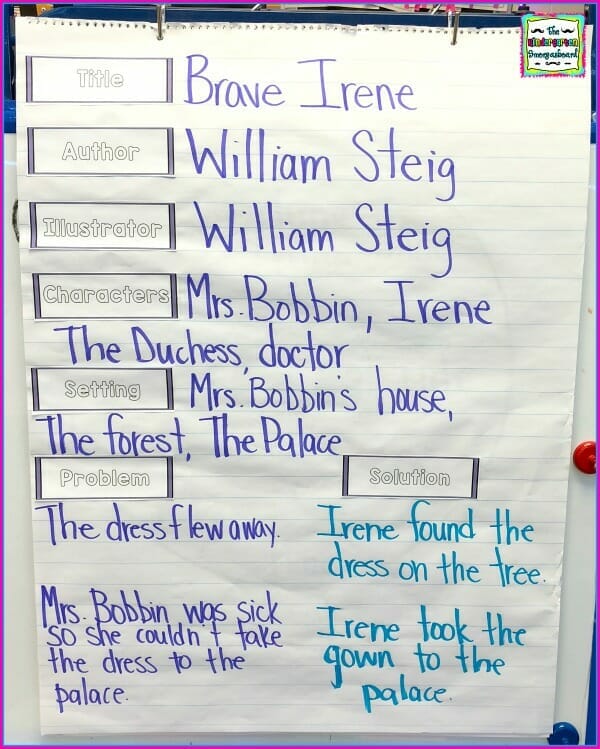 the
kindergarten
Smorgasboard
Title
Brave Irene
Author
William Steig
Illustrator
William Steig
Characters
Mrs. Bobbin, Irene
The Duchess, doctor
Setting
Mrs. Bobbin's house,
The forest, The Palace
Problem
The dress flew away.
Mrs. Bobbin was sick
so she couldn't take
the dress to the
palace.
Solution
Irene found the
dress on the tree.
Irene took the
gown to the
palace.